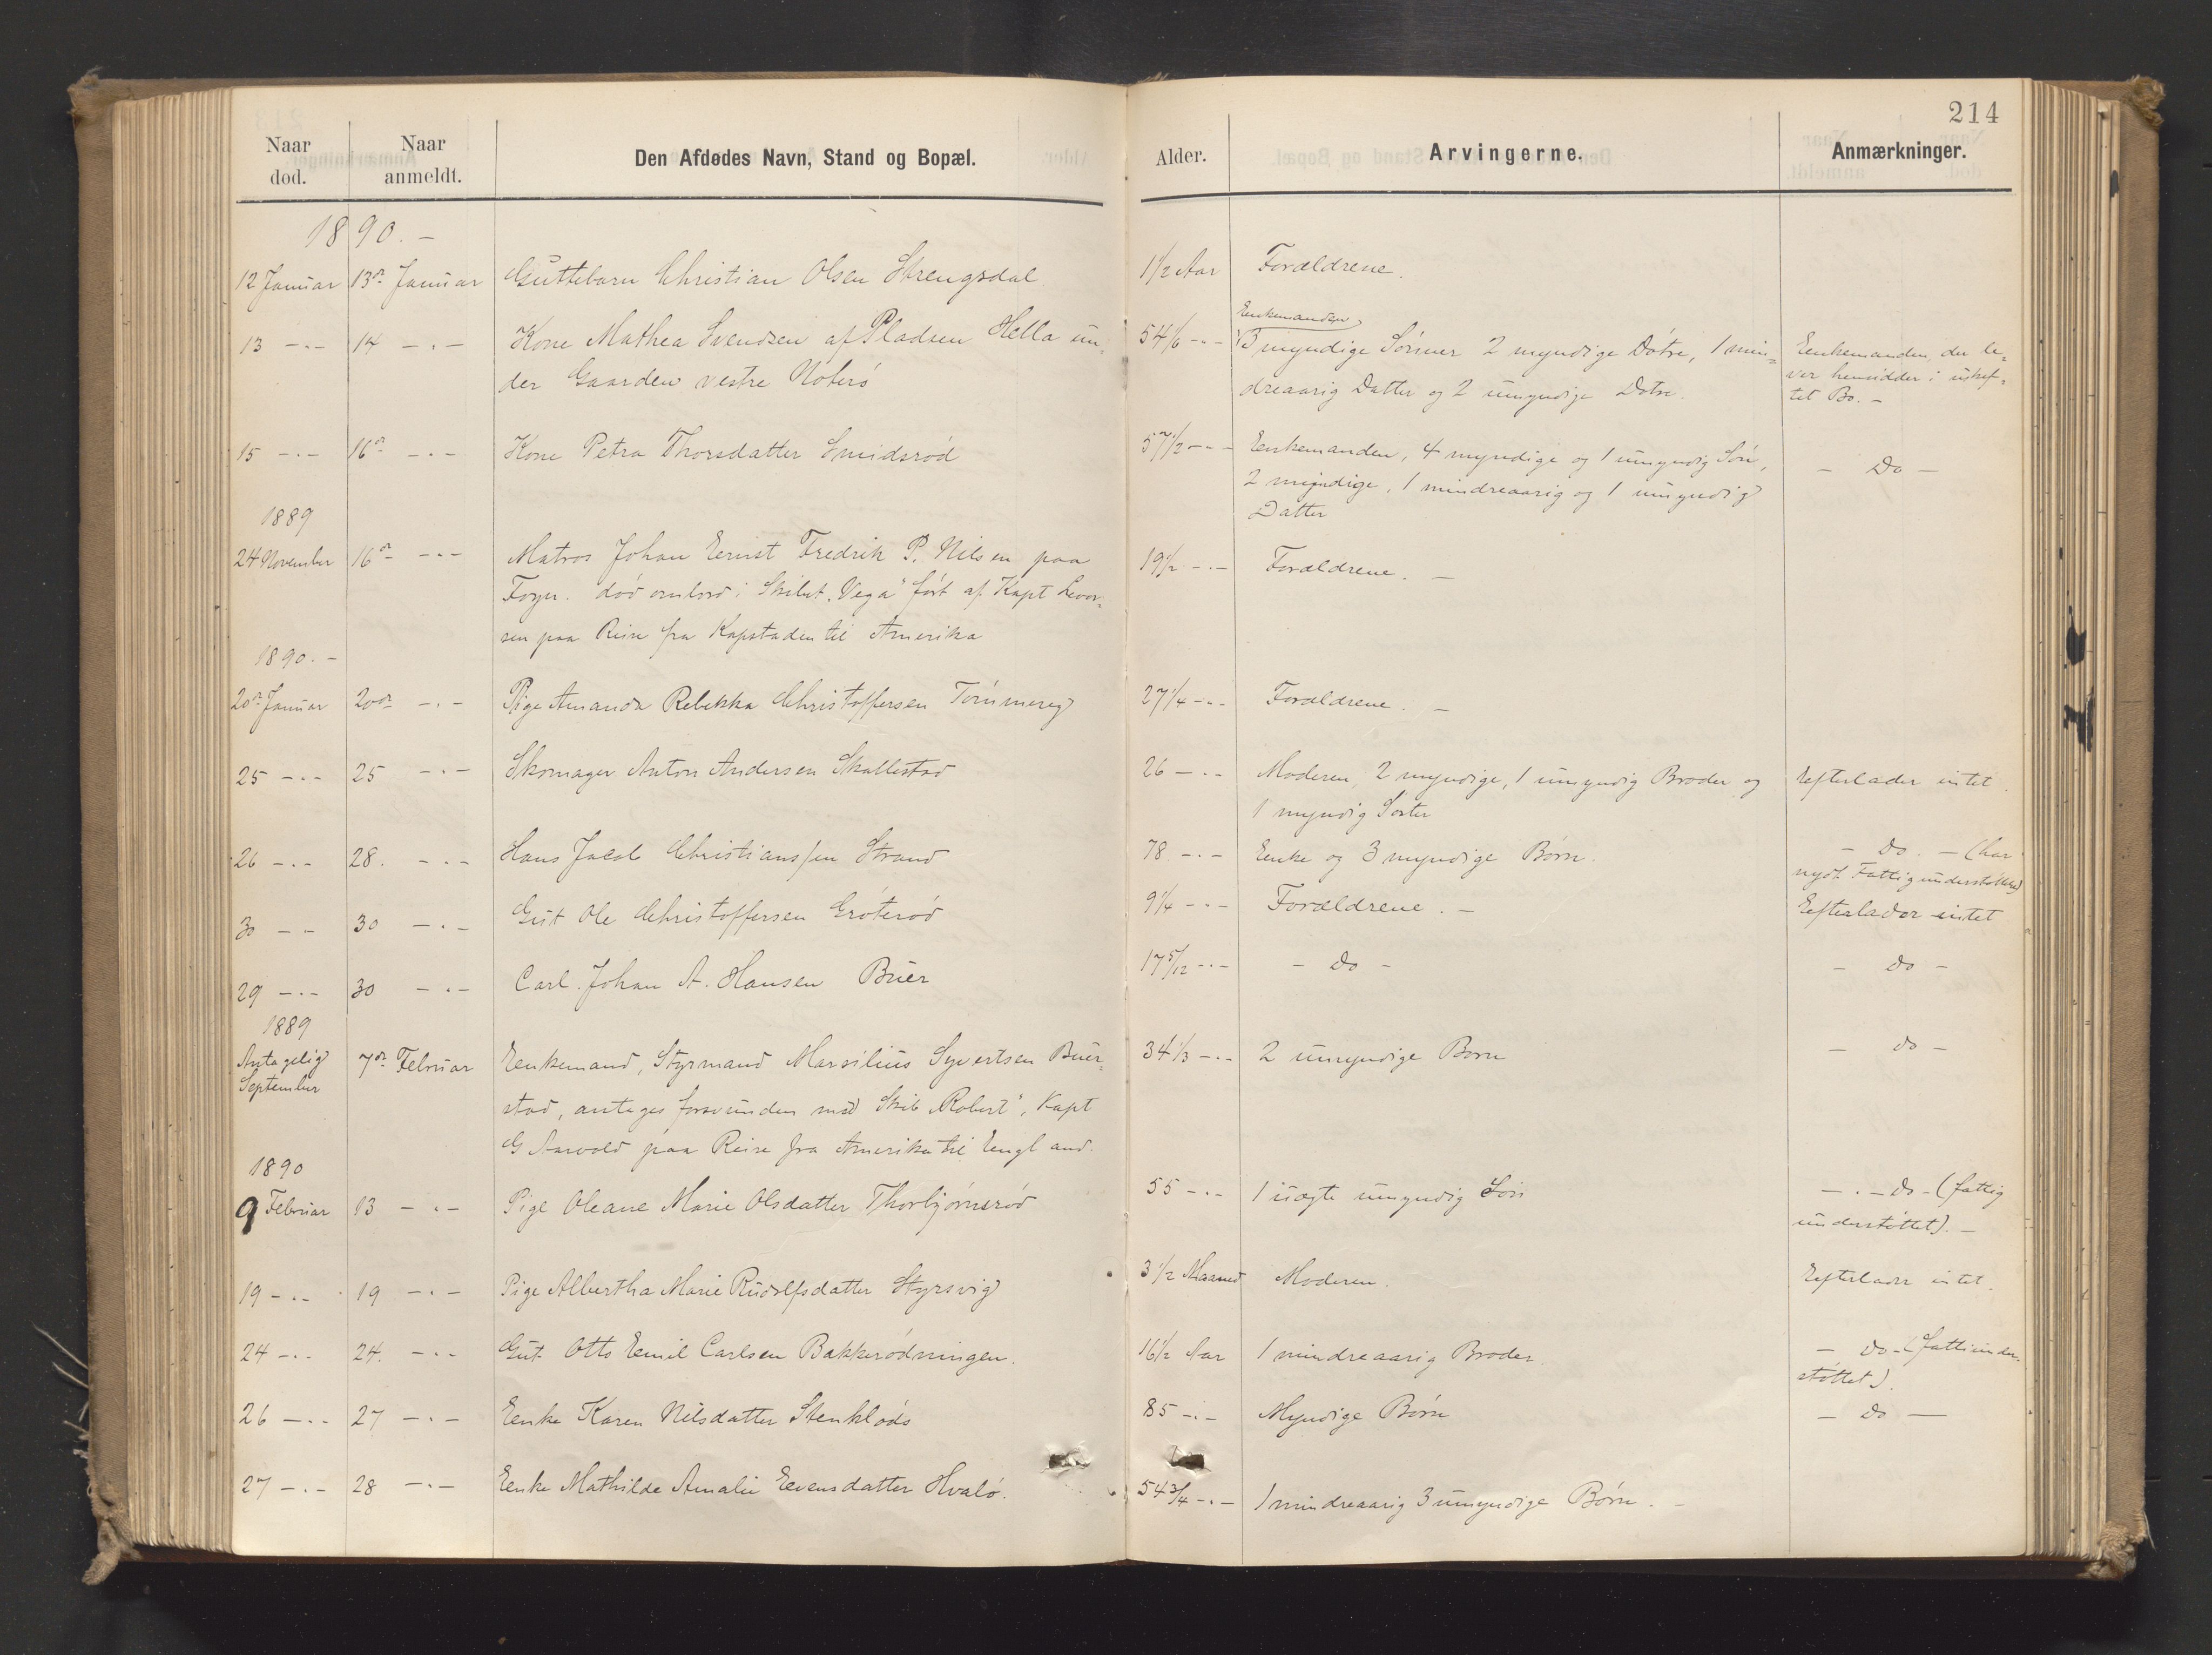 214
Naar død. Naar anmeldt. Den Afdødes Navn, Stand og Bopæl. Alder. Arvingerne. Anmærkninger.
1890. –
12 Januar 13de Januar Guttebarn Christian Olsen Strengsdal 1 1/2 Aar Forældrene.
Enkemanden,
13 –〃– 14 –〃– Kone Mathea Svendsen af Pladsen Hella un- 54 1/6 –〃– 3 myndige Sönner 2 myndige Döttre, 1 min- Enkemanden, der le-
der Gaarden vestre Nøterö dreaarig Datter og 2 umyndige Dötre. ver hensidder i uskif-
tet Bo. –
15 –〃– 16de –〃– Kone Petra Thorsdatter Smidsröd 57 1/2 –〃– Enkemanden, 4 myndige og 1 umyndig Sön, – Do –
2 myndige, 1 mindreaarig og 1 umyndig
Datter
1889
24 November 16de –〃– Matros Johan Ernst Fredrik P. Nilsen paa 19 1/2 –〃– Forældrene. –
död ombord i Skibet „Vega“ fört af Kapt Levor-
sen paa Reise fra Kapstaden til Amerika
1890. –
20de Januar 20de –〃– Pige Amanda Rebekka Christoffersen 27 1/4 –〃– Forældrene. –
25 –〃– 25 –〃– Skomager Anton Andersen Skallestad 26 –〃– Moderen, 2 myndige, 1 umyndig Broder og Efterlader intet.
1 myndig Söster
26 –〃– 28. –〃– Hans Jacob Christianssen Strand 78 –〃– Enke og 3 myndige Börn. – Do. – (har
nydt Fattigunderstöttelse)
30 – – 30 –〃– Gut Ole Christoffersen Gröteröd 9 1/4 –〃– Forældrene. – Efterlader intet
29 –〃– 30 –〃– Carl Johan A. Hansen Buer 17 5/12 –〃– – Do – – Do –
1889
Antagelig 7de Februar Enkemand, Styrmand Marsilius Syvertsen Buer- 34 1/3 –〃– 2 umyndige Börn – do –
September
stad, antages forsvunden med Skib „Robert“, Kapt
G Aarvold paa Reise fra Amerika til England.
1890
9 Februar 13 –〃– Pige Oleane Marie Olsdatter Thorbjörnsröd 55 –〃– 1 uægte umyndig Sön –〃– do – (fattig
understöttet). –
19 –〃– 19 –〃– Pige Albertha Marie Rudolfsdatter Styrsvig 3 1/2 Maaned Moderen. Efterlader intet.
24 –〃– 24. –〃– Gut Otto Emil Carlsen Bakkerödningen. 16 1/2 Aar 1 mindreaarig Broder. – Do – (fattiunder-
stöttet).
26 –〃– 27 –〃– Enke Karen Nilsdatter Stenklöds 85 –〃– Myndige Börn – Do –
27 –〃– 28 –〃– Enke Mathilde Amalie Evensdatter Hvalö. 54 3/4 –〃– 1 mindreaarig 3 umyndige Börn. –